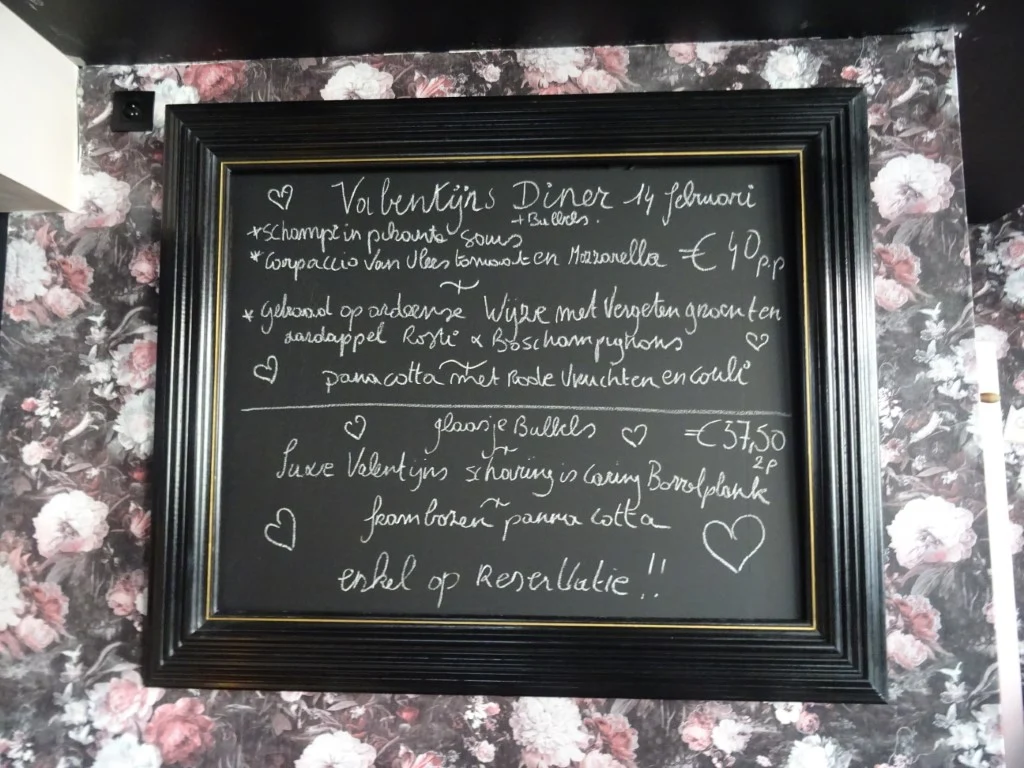 Valentijns Diner 14 februari
+ Bubbels.
* schampi in pikante saus
* Carpaccio van Vlees tomaat en Mozzarella € 40 p.p
~
* gebraad op ardeense Wijze met Vergeten groenten
aardappel Rösti & Boschampignons
~
panacotta met Rode Vruchten en coulì
glaasje Bubbels €37,50
2p
~
Luxe Valentijns scharing is caring Borrelplank
~
frambozen panna cotta
enkel op Reservatie !!